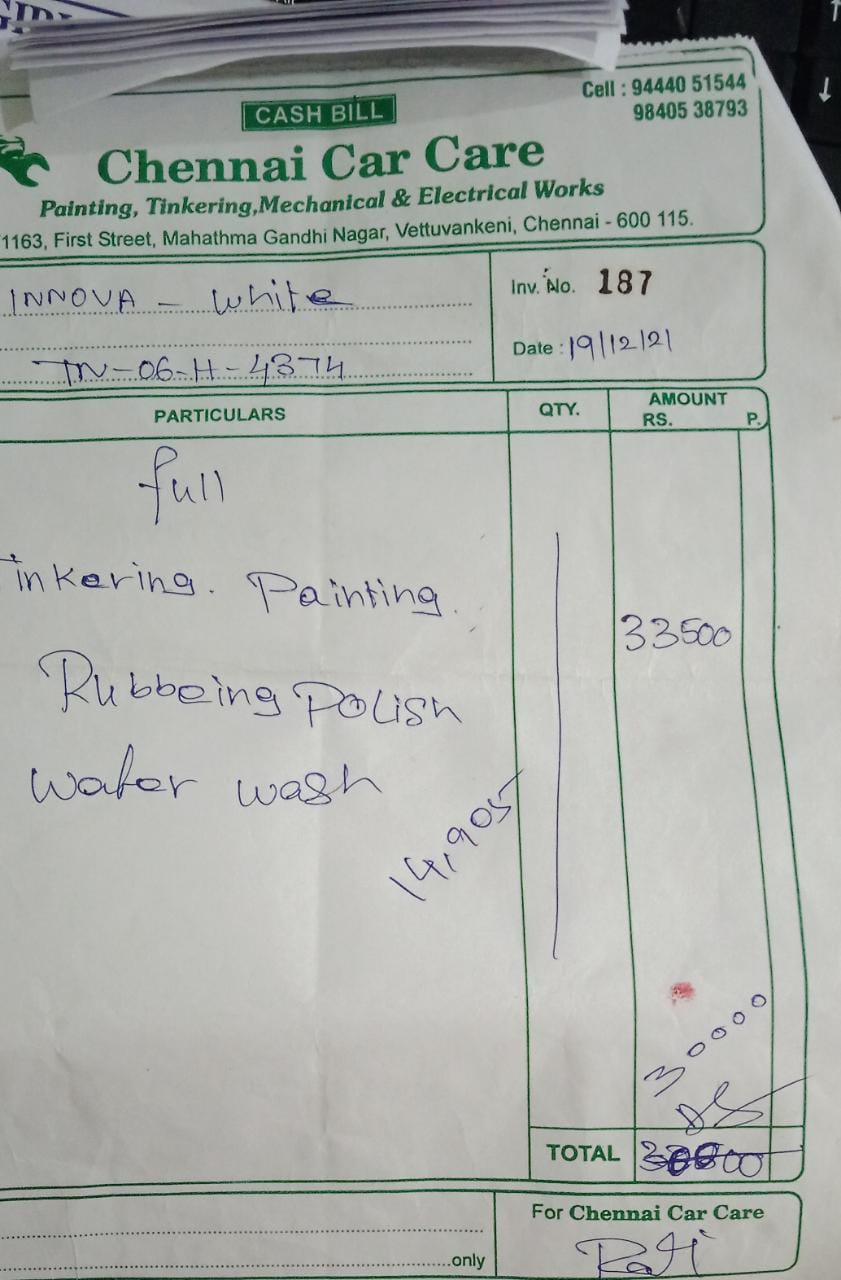 Cell : 94440 51544
CASH BILL
98405 38793
Chennai Car Care
Painting, Tinkering,Mechanical & Electrical Works
1163, First Street, Mahathma Gandhi Nagar, Vettuvankeni, Chennai - 600 115.
INNOVA - White
Inv. No. 187
TN-06-H-4374
Date : 19/12/21
PARTICULARS QTY. AMOUNT
RS. P.
full
Tinkering. Painting.
33500
Rubbeing Polish
water wash
14,905
30000
TOTAL
For Chennai Car Care
only